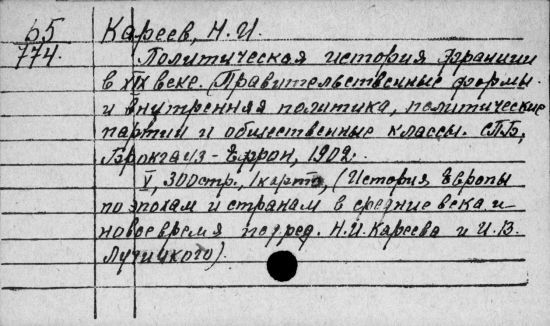 65
774.
Кареев, Н.И.
Политическая история Франции
в XIX веке. (Правительственные формы
и внутренняя политика, политические
партии и общественные классы. СПБ,
Брокгауз-Ефрон, 1902.
V, 300стр., 1карта, (История Европы
по эпохам и странам в средние века и
новое время под ред. Н.И. Кареева и И.В.
Лучицкого).